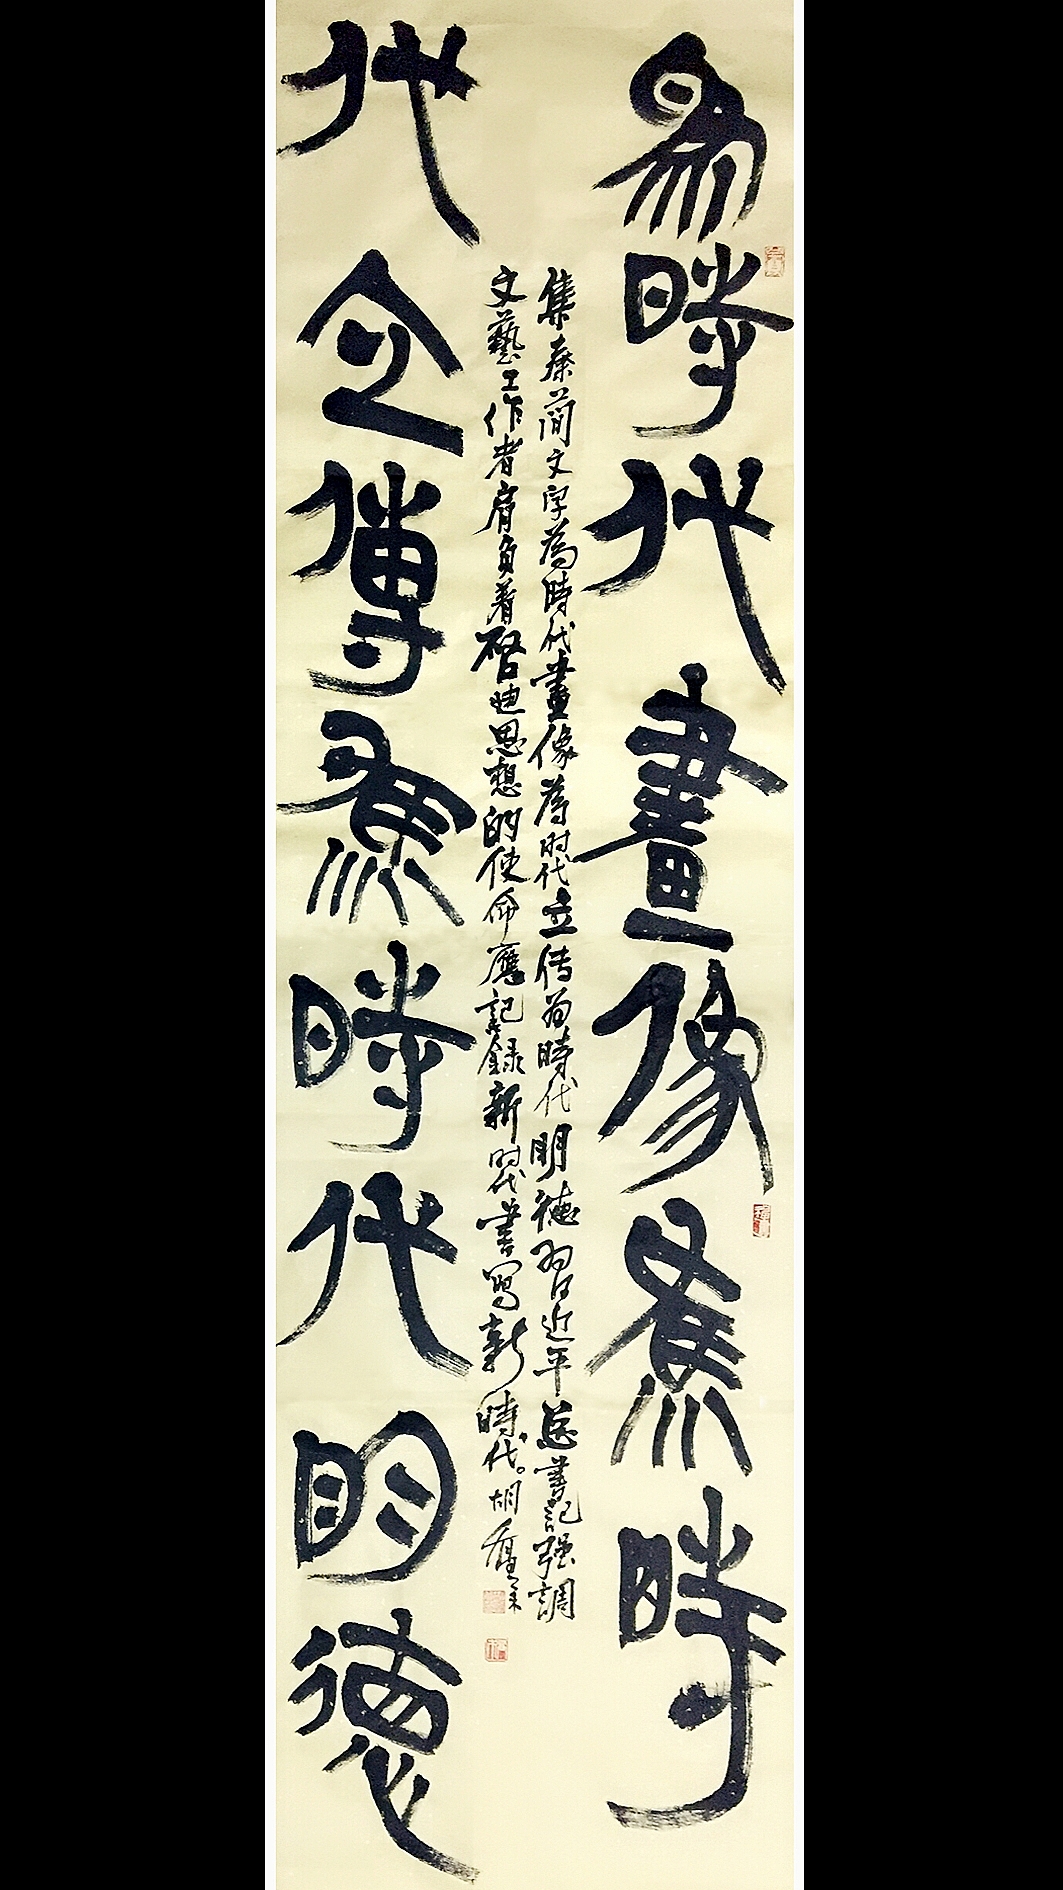 為時代畫像為時
代立傳為時代明德
集秦簡文字為時代畫像為时代立传為時代明德習近平总書記强調
文藝工作者肩負着啓迪思想的使命應記錄新时代書寫新時代。胡